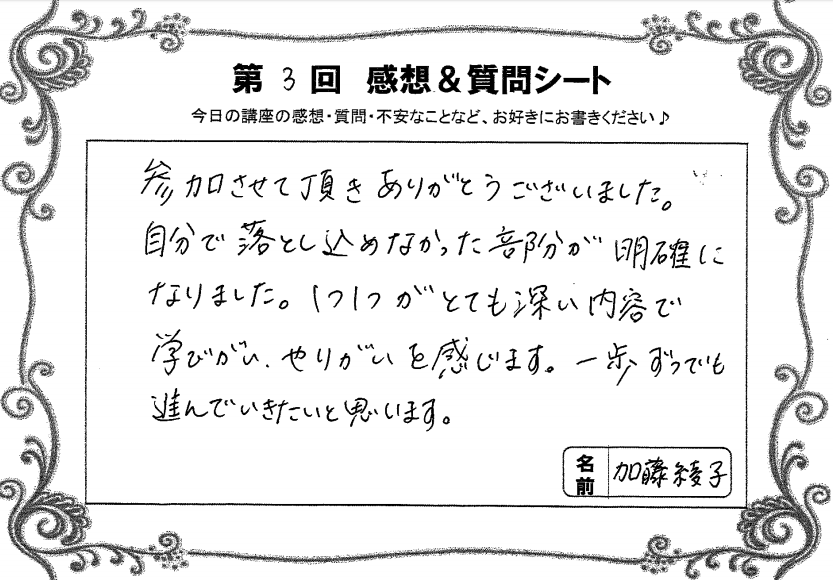 第 3 回 感想&質問シート
今日の講座の感想・質問・不安なことなど、お好きにお書きください♪
参加させて頂きありがとうございました。
自分で落とし込めなかった部分が明確に
なりました。1つ1つがとても深い内容で
学びがい、やりがいを感じます。一歩ずつでも
進んでいきたいと思います。
名前 加藤綾子